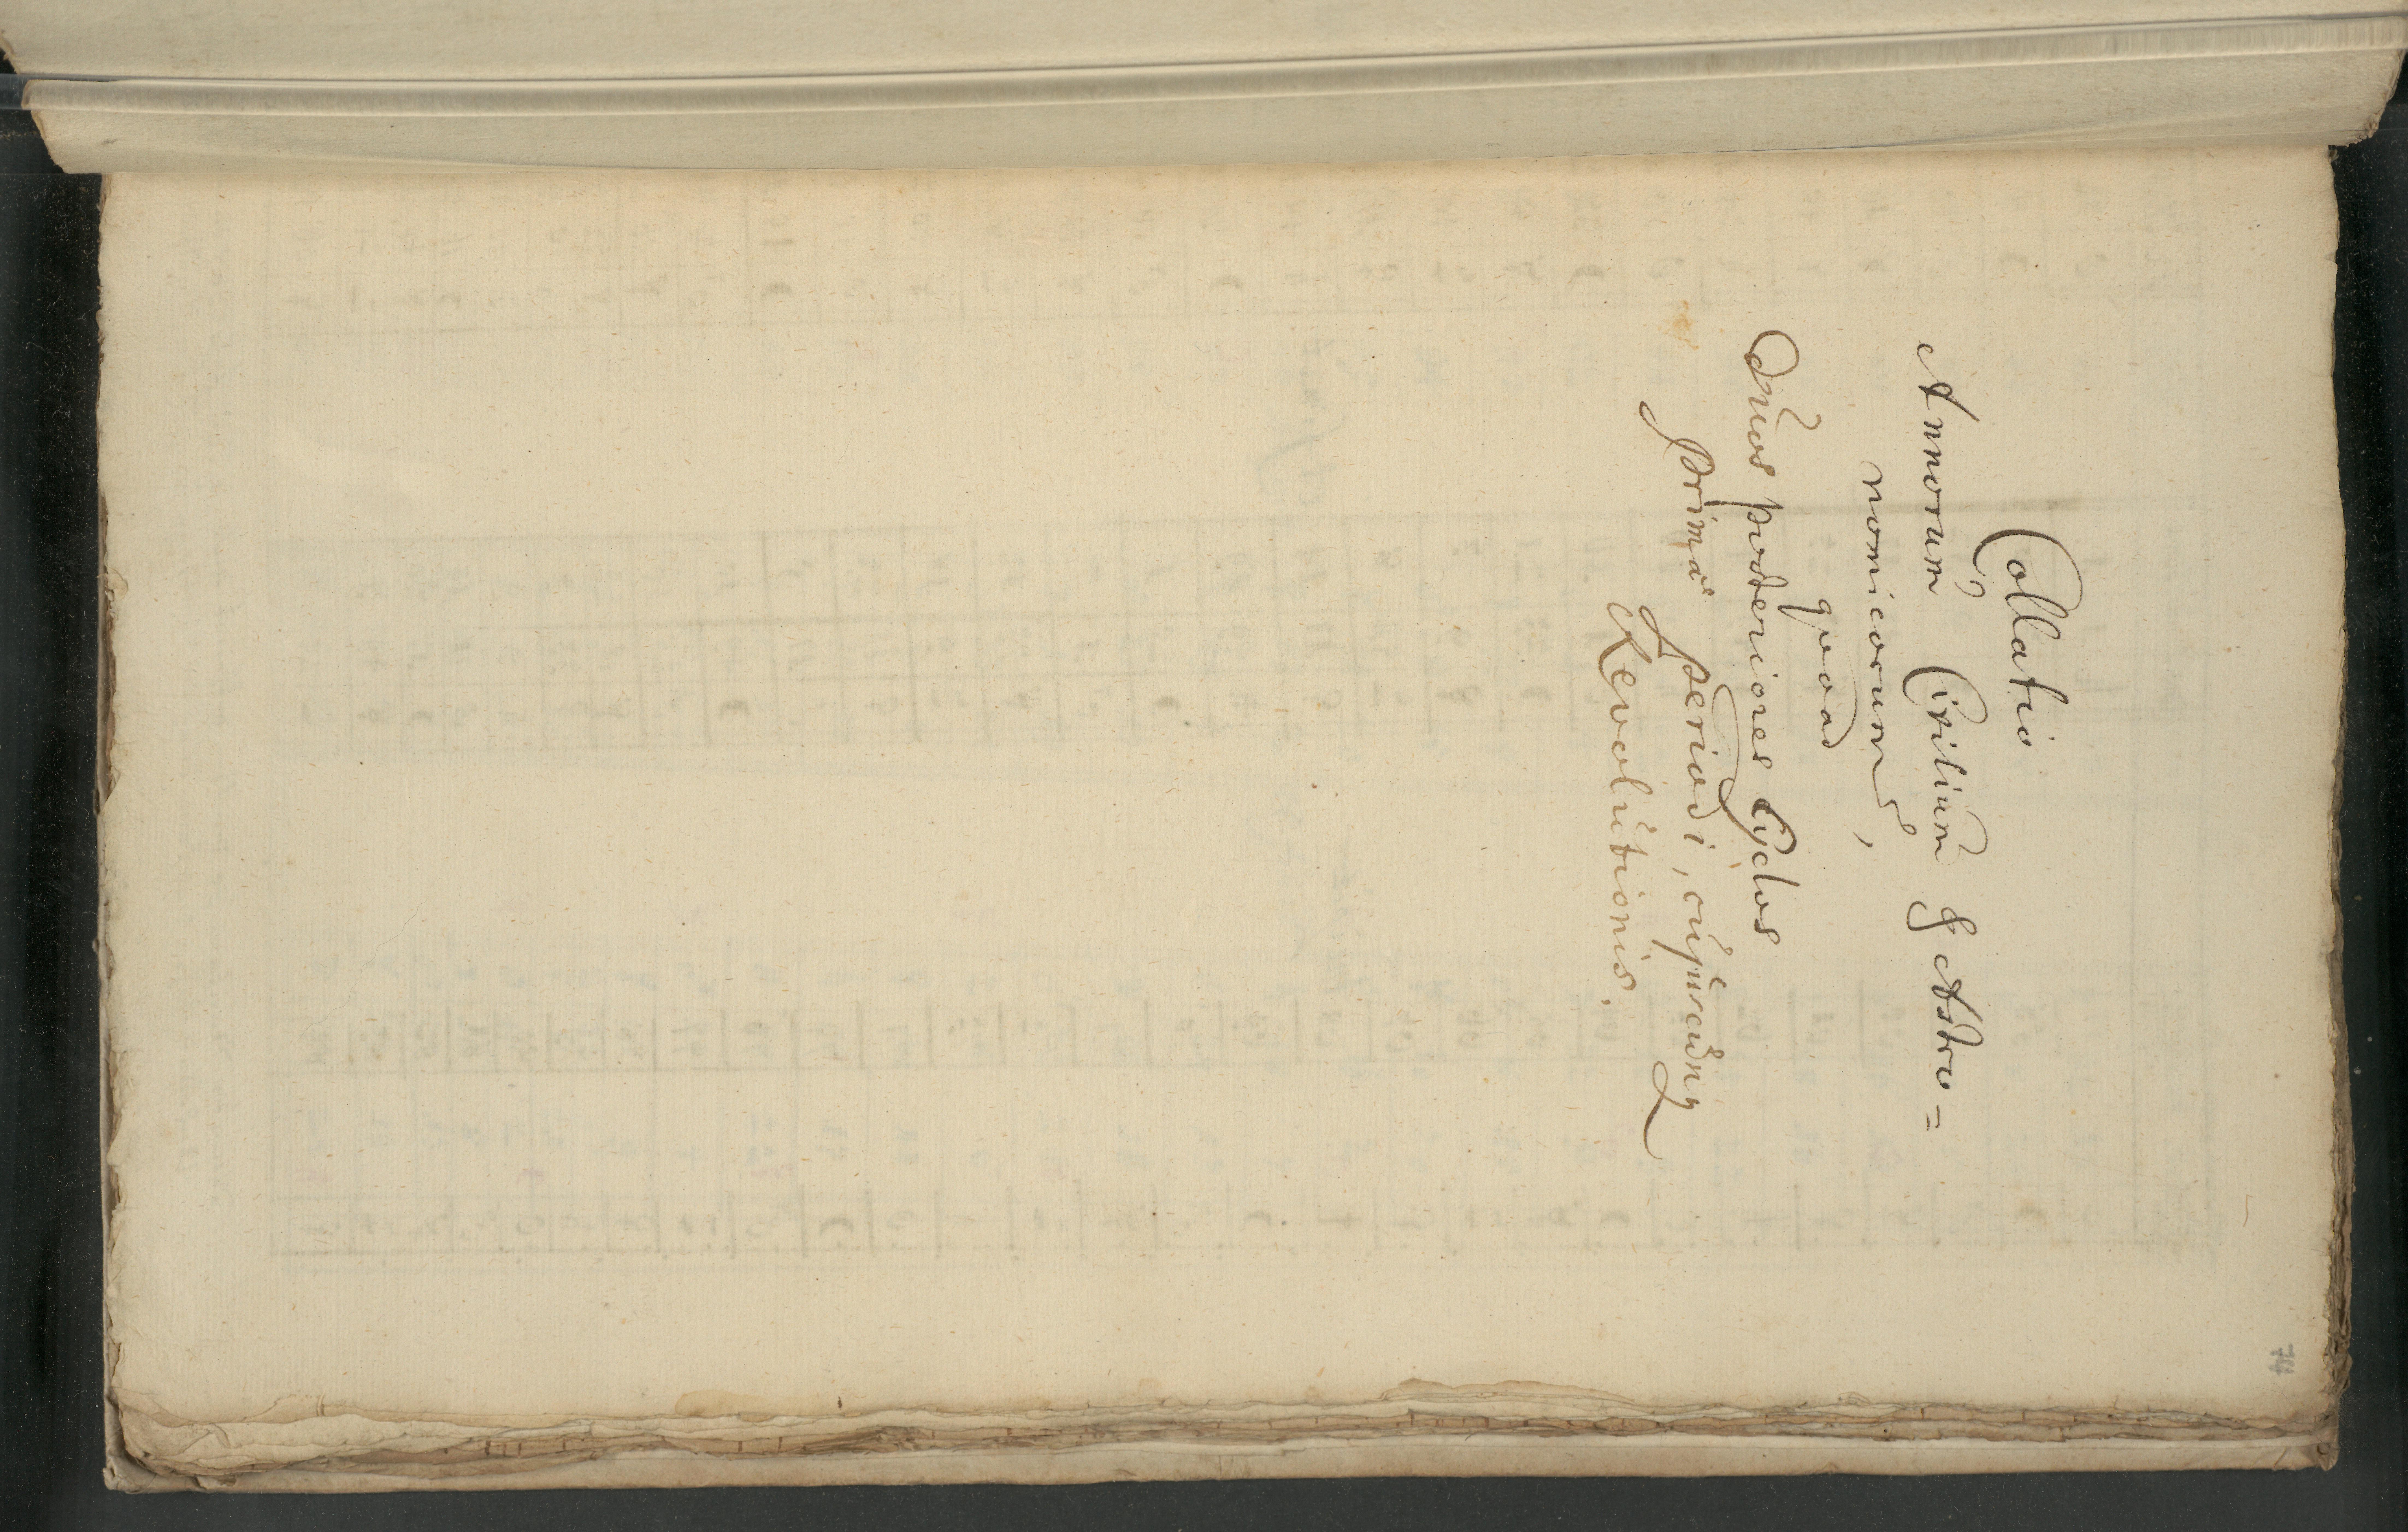 Collatio
Annorum Civilium & Astro=
nomicorum,
quoad
Duos posteriores Cyclos
primae Periodi, cujuscunq
Revolutionis.